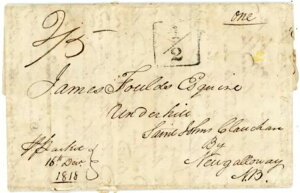 one
2/5
James Foulds Esquire
Underhill
Saint Johns Clauchan
By
Newgalloway
N.B.
16th Decr
1818